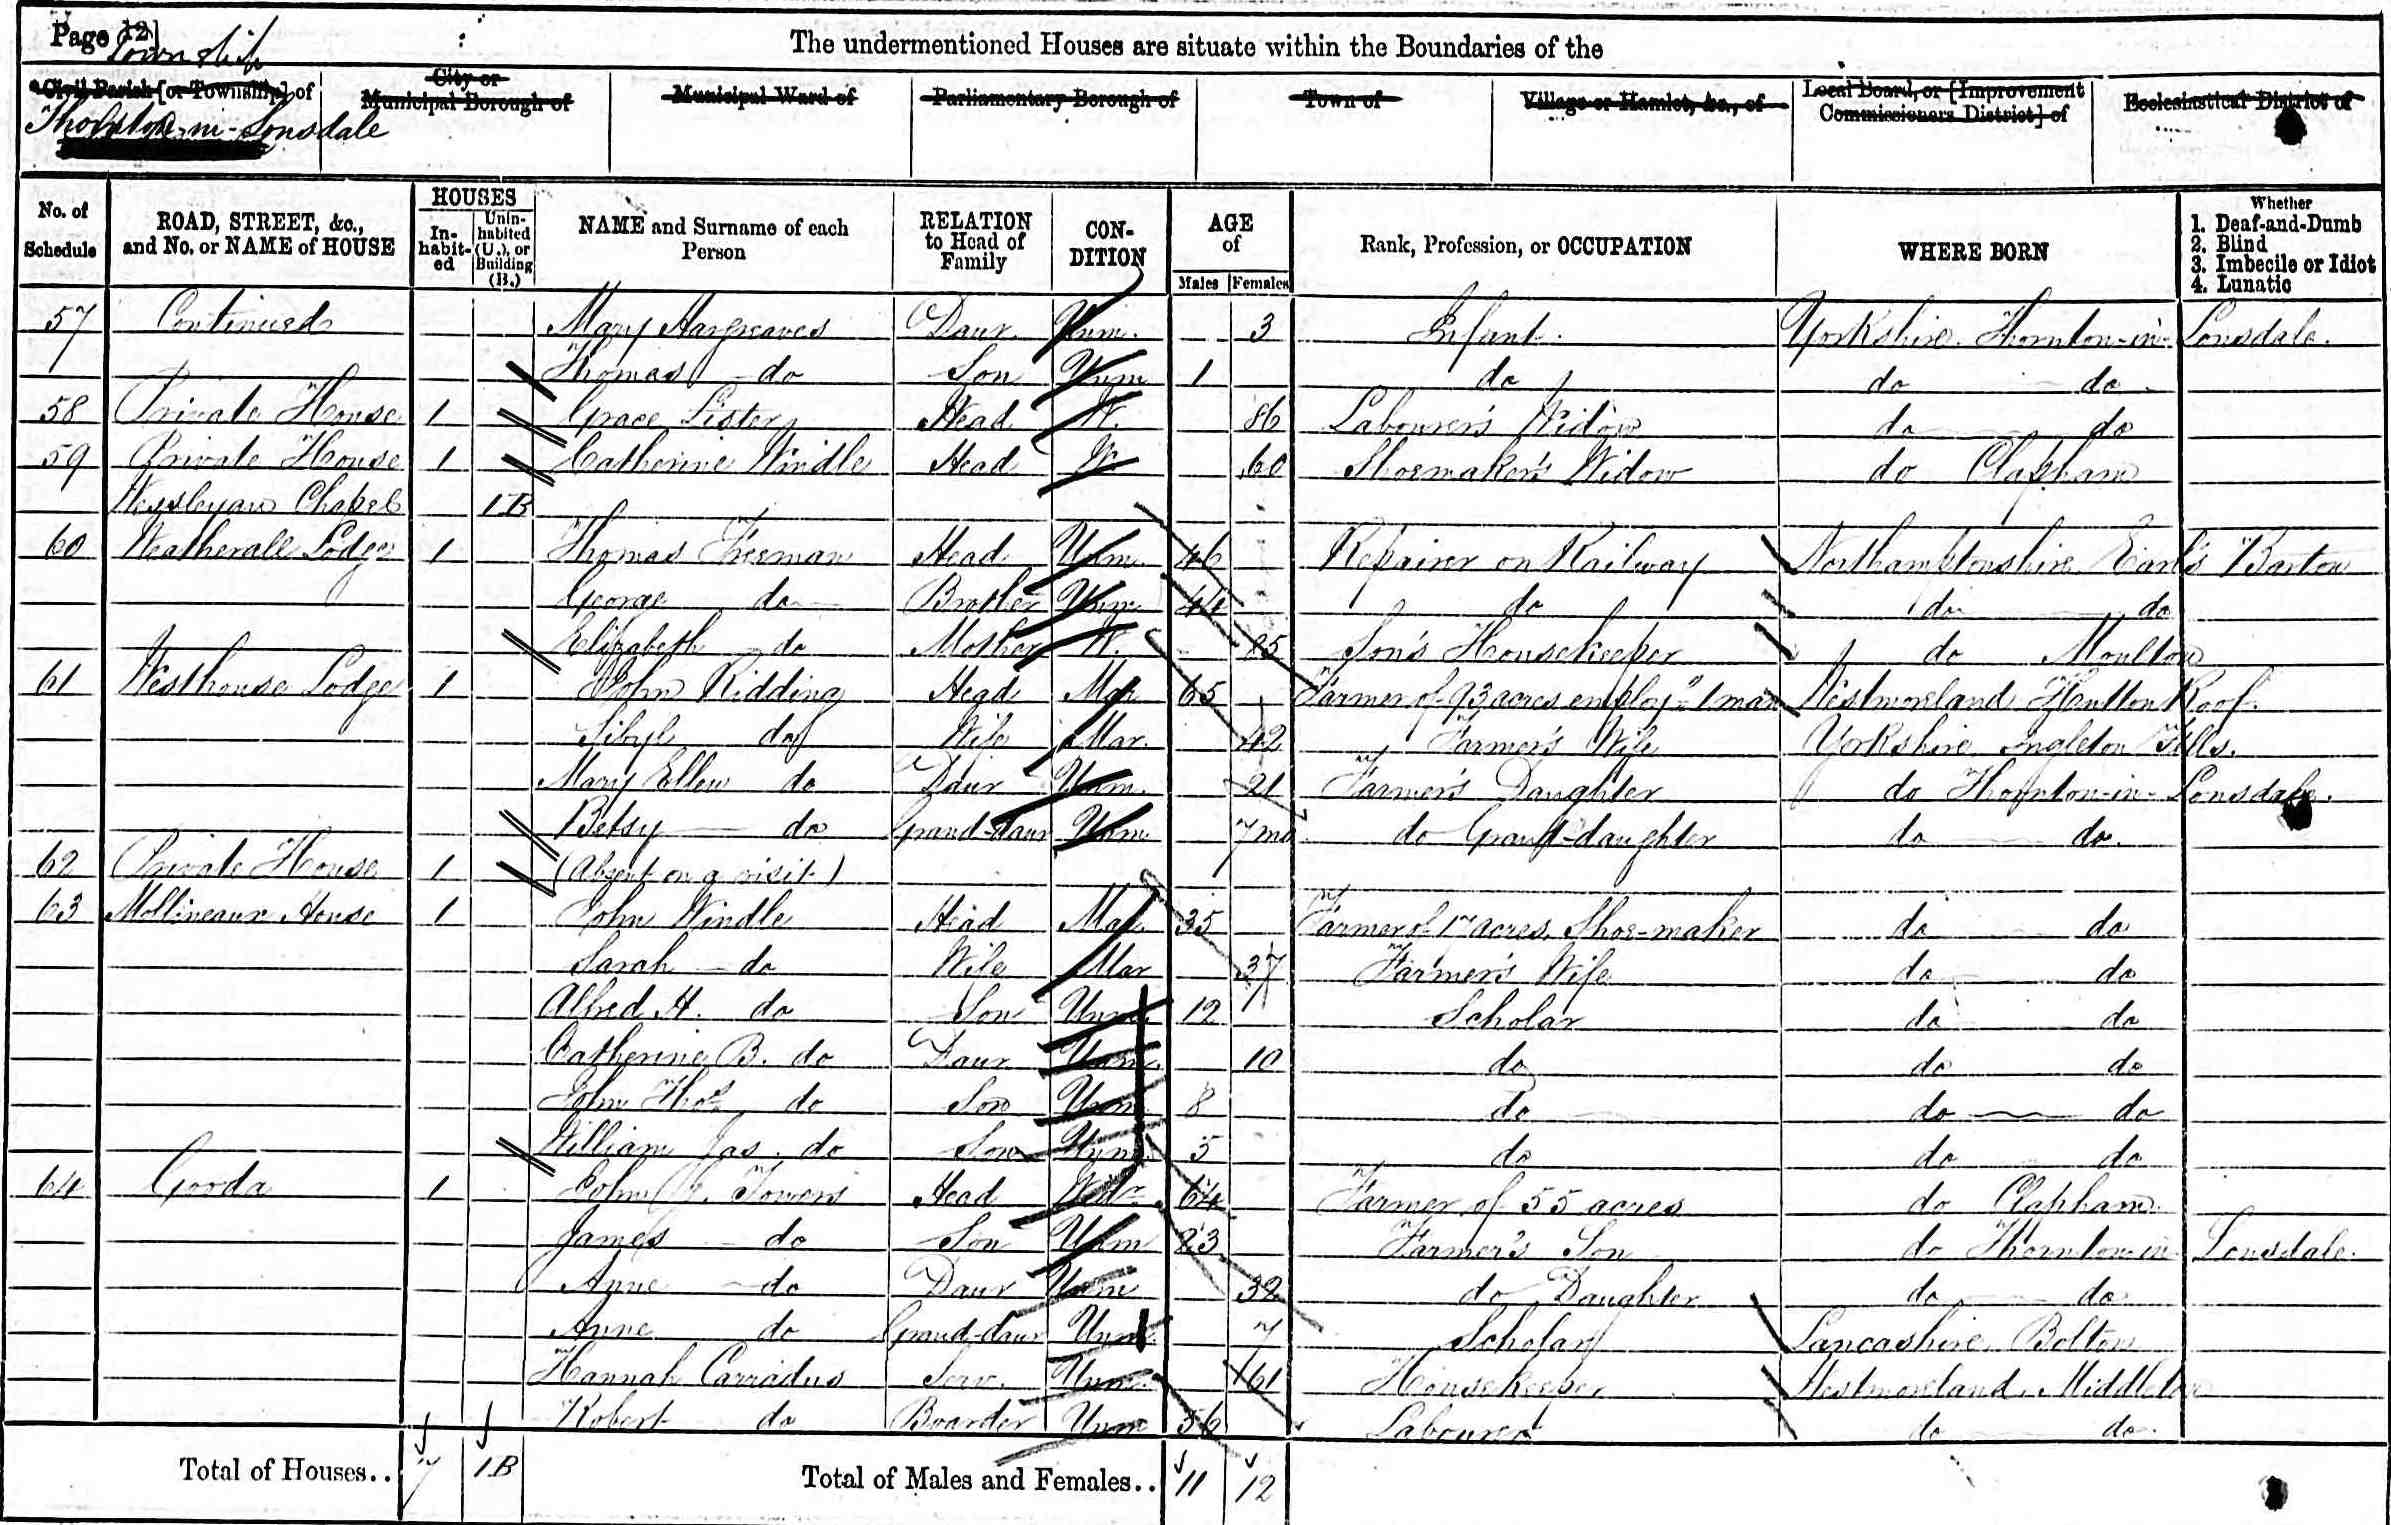 Page 12]
Township
The undermentioned Houses are situate within the Boundaries of the
Civil Parish [or Township] of
City or Municipal Borough of
Municipal Ward of
Parliamentary Borough of
Town of
Village or Hamlet, &c., of
Local Board, or [Improvement Commissioners District] of
Ecclesiastical District of
Thornton-in-Lonsdale
No. of Schedule
ROAD, STREET, &c., and No. or NAME of HOUSE
HOUSES
In-habit-ed
Unin-habited (U.), or Building (B.)
NAME and Surname of each Person
RELATION to Head of Family
CON-DITION
AGE of
Males Females
Rank, Profession, or OCCUPATION
WHERE BORN
Whether
1. Deaf-and-Dumb
2. Blind
3. Imbecile or Idiot
4. Lunatic
57 Continued Mary Hargreaves Daur Unm. 3 Infant. Yorkshire Thornton-in-Lonsdale.
Thomas do Son Unm 1 do do do
58 Private House 1 Grace Lister Head W. 86 Labourer's Widow do do
59 Private House 1 Catherine Windle Head W 60 Shoemaker's Widow do Clapham
Wessleyan Chapel 1B
60 Weatherall Lodge 1 Thomas Freeman Head Unm. 46 Repairer on Railway Northamptonshire Earl's Barton
George do Brother Unm 44 do do do
Elizabeth do Mother W. 85 Son's Housekeeper do Moulton
61 Westhouse Lodge 1 John Ridding Head Mar 65 Farmer of 93 acres employ.g 1 man Westmoreland Hutton Roof.
Sibyl do Wife Mar. 42 Farmer's Wife Yorkshire Ingleton Fells.
Mary Ellen do Daur Unm. 21 Farmer's Daughter do Thornton-in-Lonsdale.
Betsy do Grand-daur Unm 7mo do Grand-daughter do do.
62 Private House 1 (Absent on a visit)
63 Mollineaux House 1 John Windle Head Mar. 35 Farmer of 17 acres, Shoe-maker do do
Sarah do Wife Mar 37 Farmer's Wife do do
Alfred H. do Son Unm. 12 Scholar do do
Catherine B. do Daur Unm. 10 do do do
John Thos. do Son Unm. 8 do do do
William Jas. do Son Unm. 5 do do do
64 Gooda 1 John Towers Head Widr. 64 Farmer of 55 acres do Clapham.
James do Son Unm 23 Farmer's Son do Thornton-in-Lonsdale.
Anne do Daur Unm 32 do Daughter do do
Anne do Grand-daur Unm. 7 Scholar Lancashire, Bolton
Hannah Carradus Serv. Unm. 61 Housekeeper Westmoreland, Middleton
Robert do Boarder Unm 56 Labourer do do.
Total of Houses.. 7 1B Total of Males and Females.. 11 12